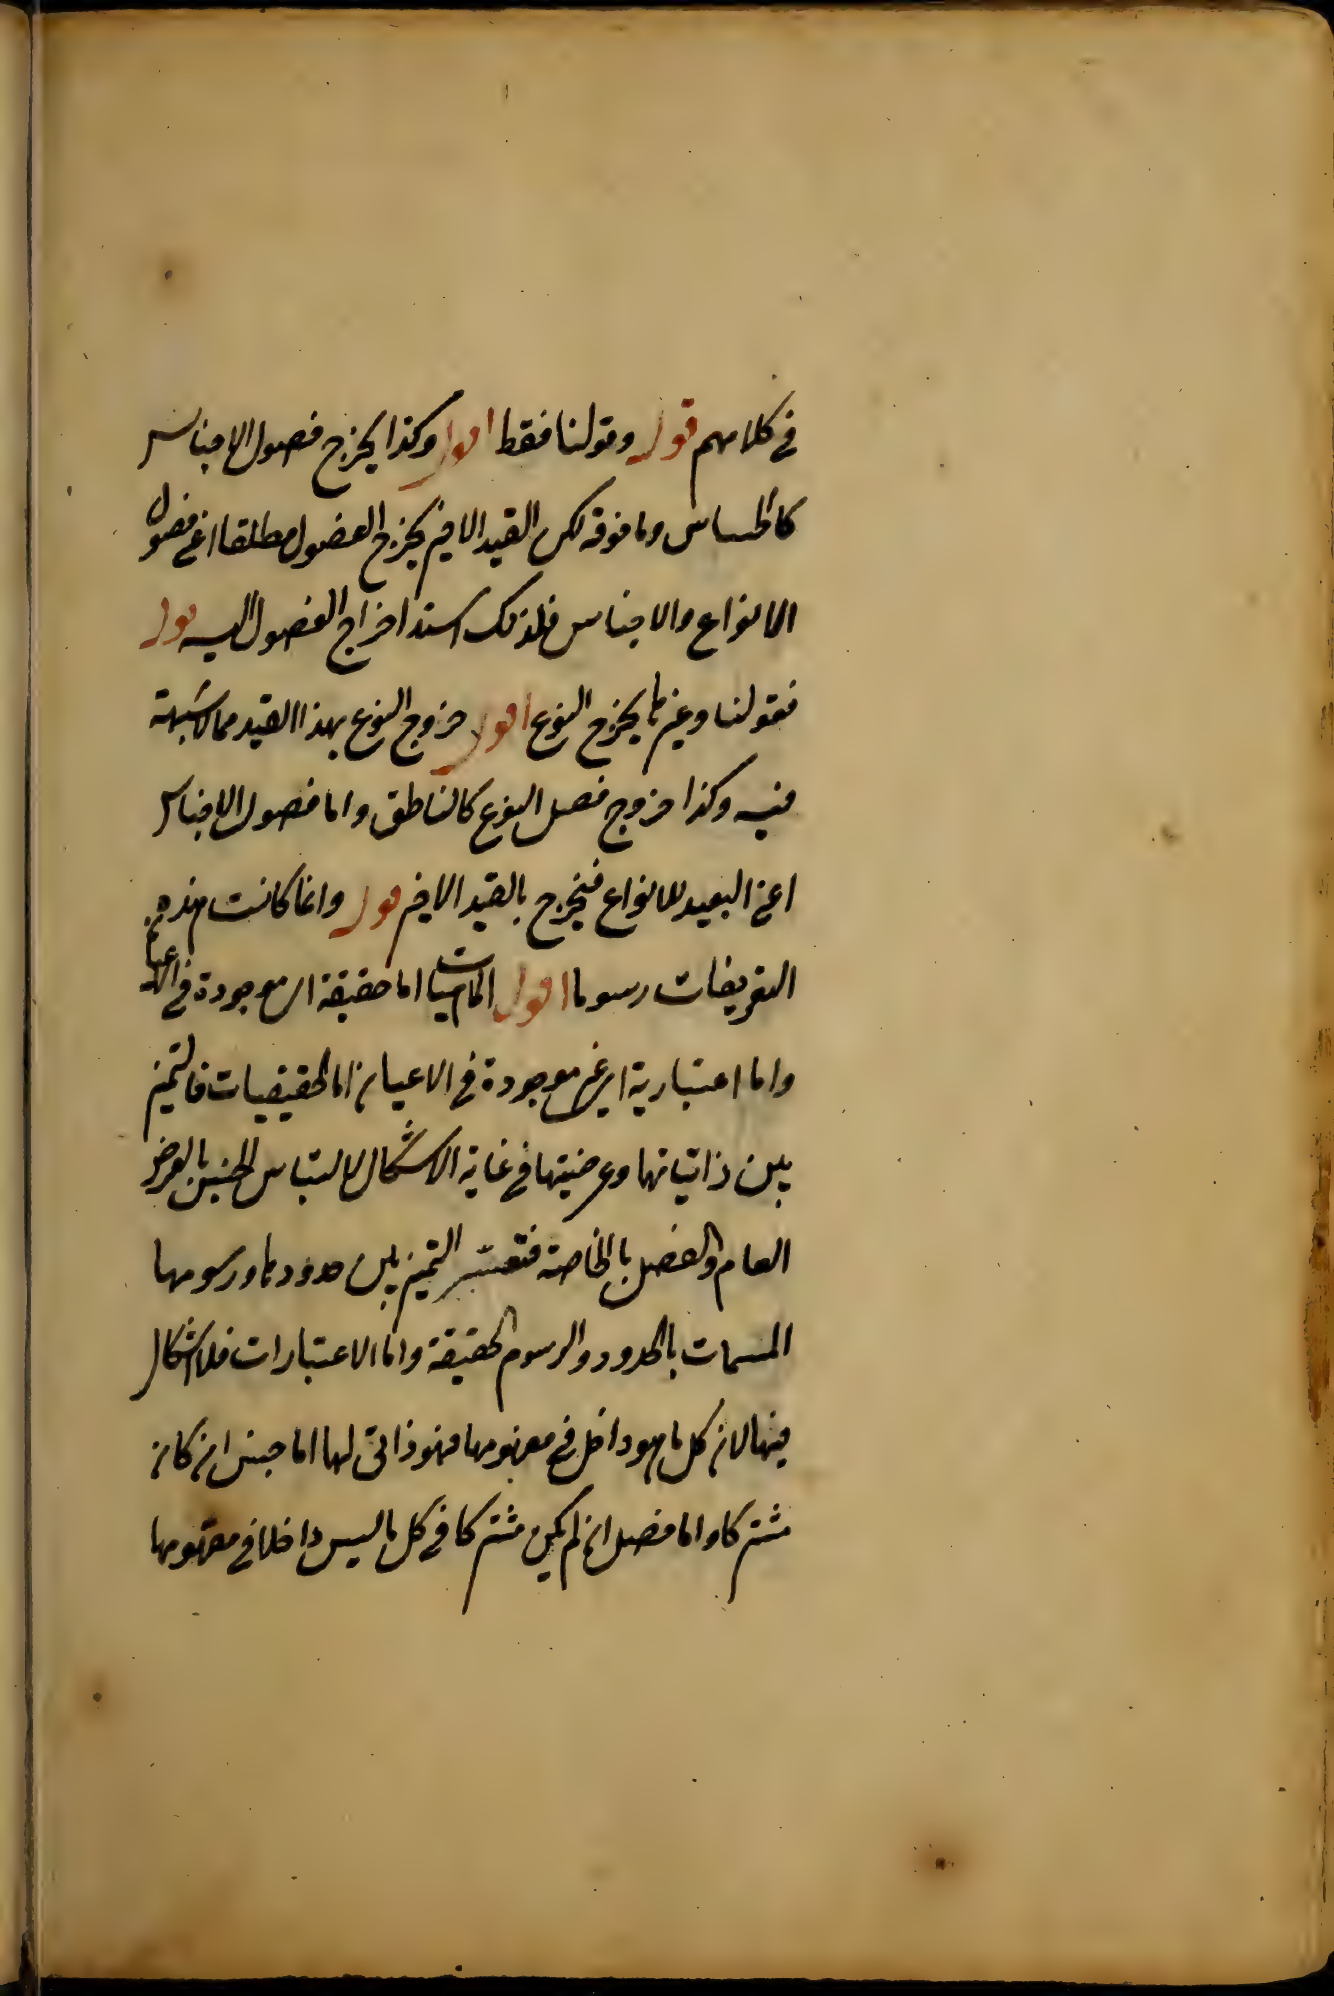 في كلامهم قوله وقولنا فقط اقول وكذا يخرج فصول الاجناس
كالحساس وما فوقه لكن القيد الاخير يخرج الفصول مطلقا اعني فصول
الانواع والاجناس فلذلك اسند اخراج الفصول اليه قوله
فقولنا وغيرها يخرج النوع اقول خروج النوع بهذا القيد مما لا شبهة
فيه وكذا خروج فصل النوع كالناطق واما فصول الاجناس
اعني البعيد للانواع فيخرج بالقيد الاخير قوله وانما كانت هذه
التعريفات رسوما اقول الماهيات اما حقيقة اى موجودة في الاعيان
واما اعتبارية اى غير موجودة في الاعيان اما الحقيقيات فالتميز
بين ذاتياتها وعرضيتها في غاية الاشكال لالتباس الجنس بالعرض
العام والفصل بالخاصة فتعسر التميز بين حدودها ورسومها
المسمات بالحدود والرسوم الحقيقة واما الاعتبارات فلا اشكال
فيها لان كل ما هو داخل في مفهومها فهو ذاتى لها اما جنس ان كان
مشتركا واما فصل ان لم يكن مشتركا في كل ما ليس داخلا في مفهومها